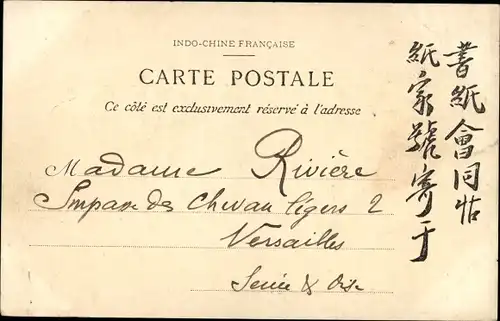 INDO-CHINE FRANÇAISE
CARTE POSTALE
Ce côté est exclusivement réservé à l'adresse
Madame Rivière
Impasse des Chevau légers 2
Versailles
Seine & Oise
書紙會同帖
紙家號寄于